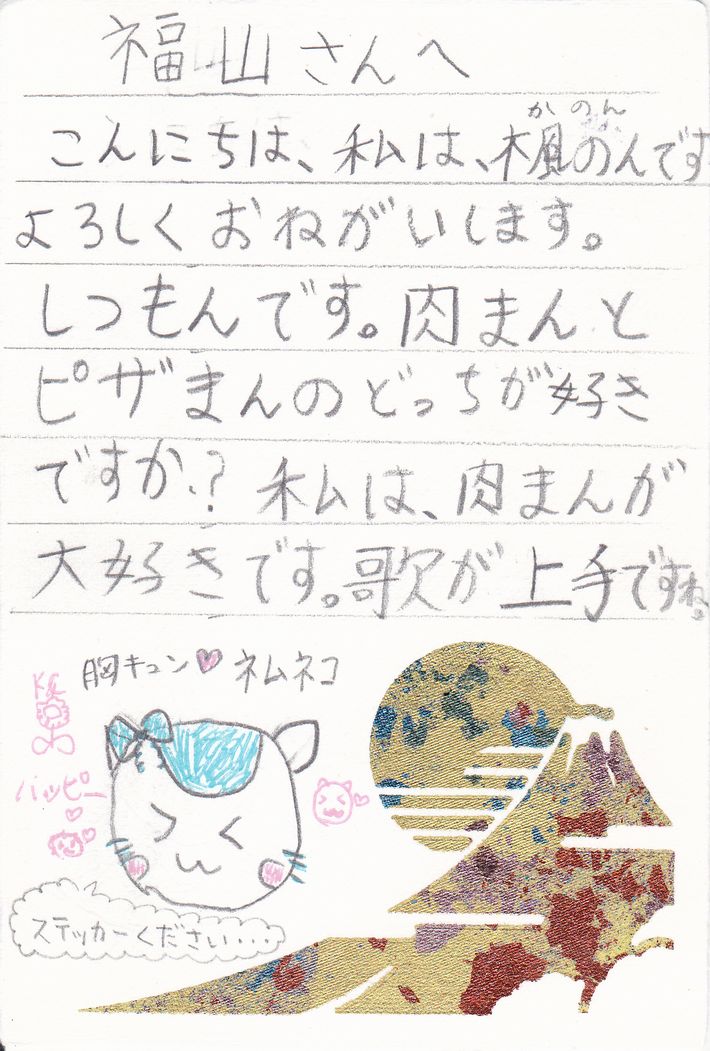 福山さんへ
かのん
こんにちは、私は、楓のんです
よろしくおねがいします。
しつもんです。肉まんと
ピザまんのどっちが好き
ですか?私は、肉まんが
大好きです。歌が上手ですね。
胸キュン♡ネムネコ
ハッピー
ステッカーください・・・